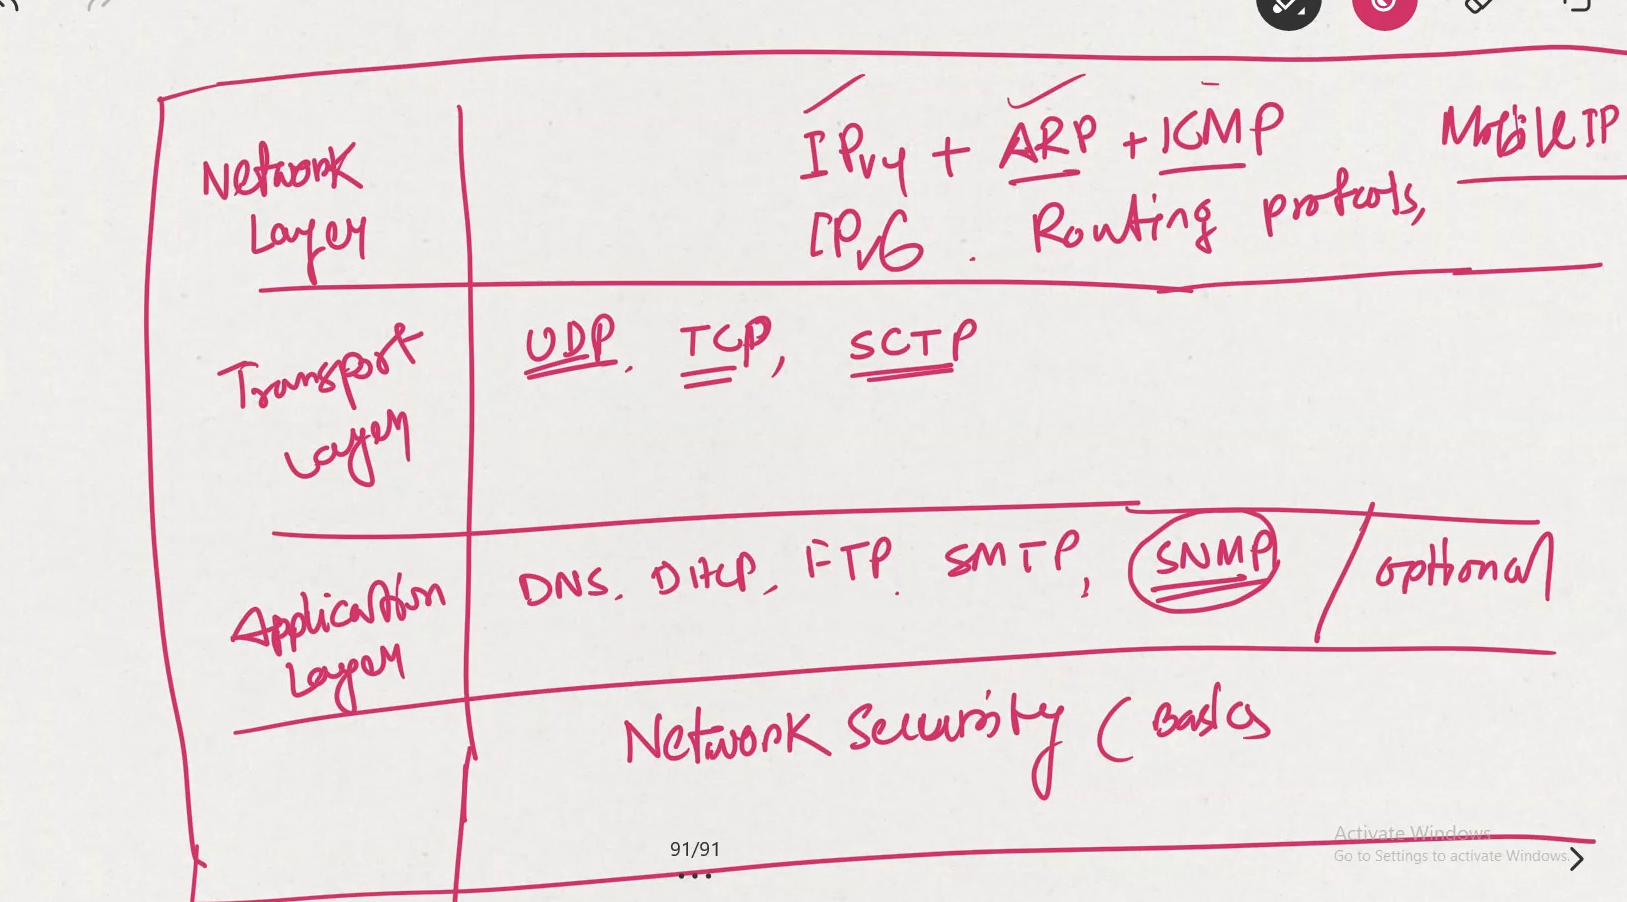 Network
Layer
IPv4 + ARP + ICMP Mobile IP
IPv6. Routing protcols,
Transport
Layer
UDP. TCP, SCTP
Application
Layer
DNS. DHCP, FTP. SMTP, SNMP / optional
Network Security ( Basics
91/91
Activate Windows
Go to Settings to activate Windows.